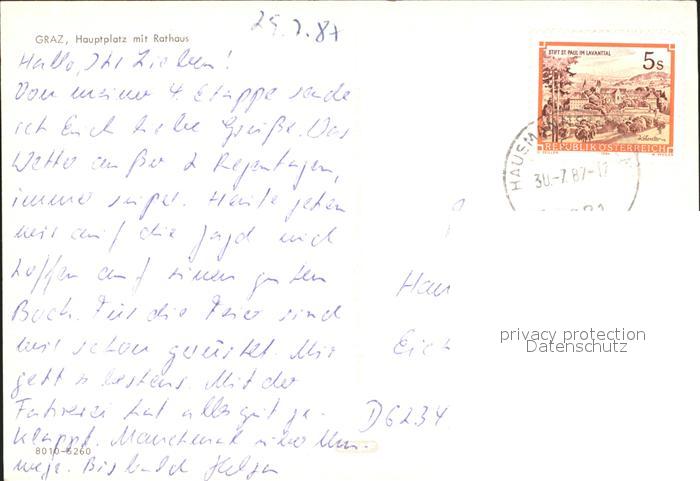 29.7.87
GRAZ, Hauptplatz mit Rathaus
Hallo, Ihr Lieben!
Von meiner 4. Etappe sende
ich Euch liebe Grüße. Das
Wetter außer 2 Regentagen,
immer super. Heute gehen
wir auf die Jagd und
hoffen auf einen guten
Bock. Für die Feier sind
wir schon gerüstet. Mir
geht's bestens. Mit der
Fahrerei hat alles gut ge-
klappt. Manchmal über Um-
wege. Bis bald
8010-5260
STIFT ST. PAUL IM LAVANTTAL
5s
REPUBLIK ÖSTERREICH
HAUSM
30.-7.87-17
Hau
Eich
D6234
privacy protection
Datenschutz